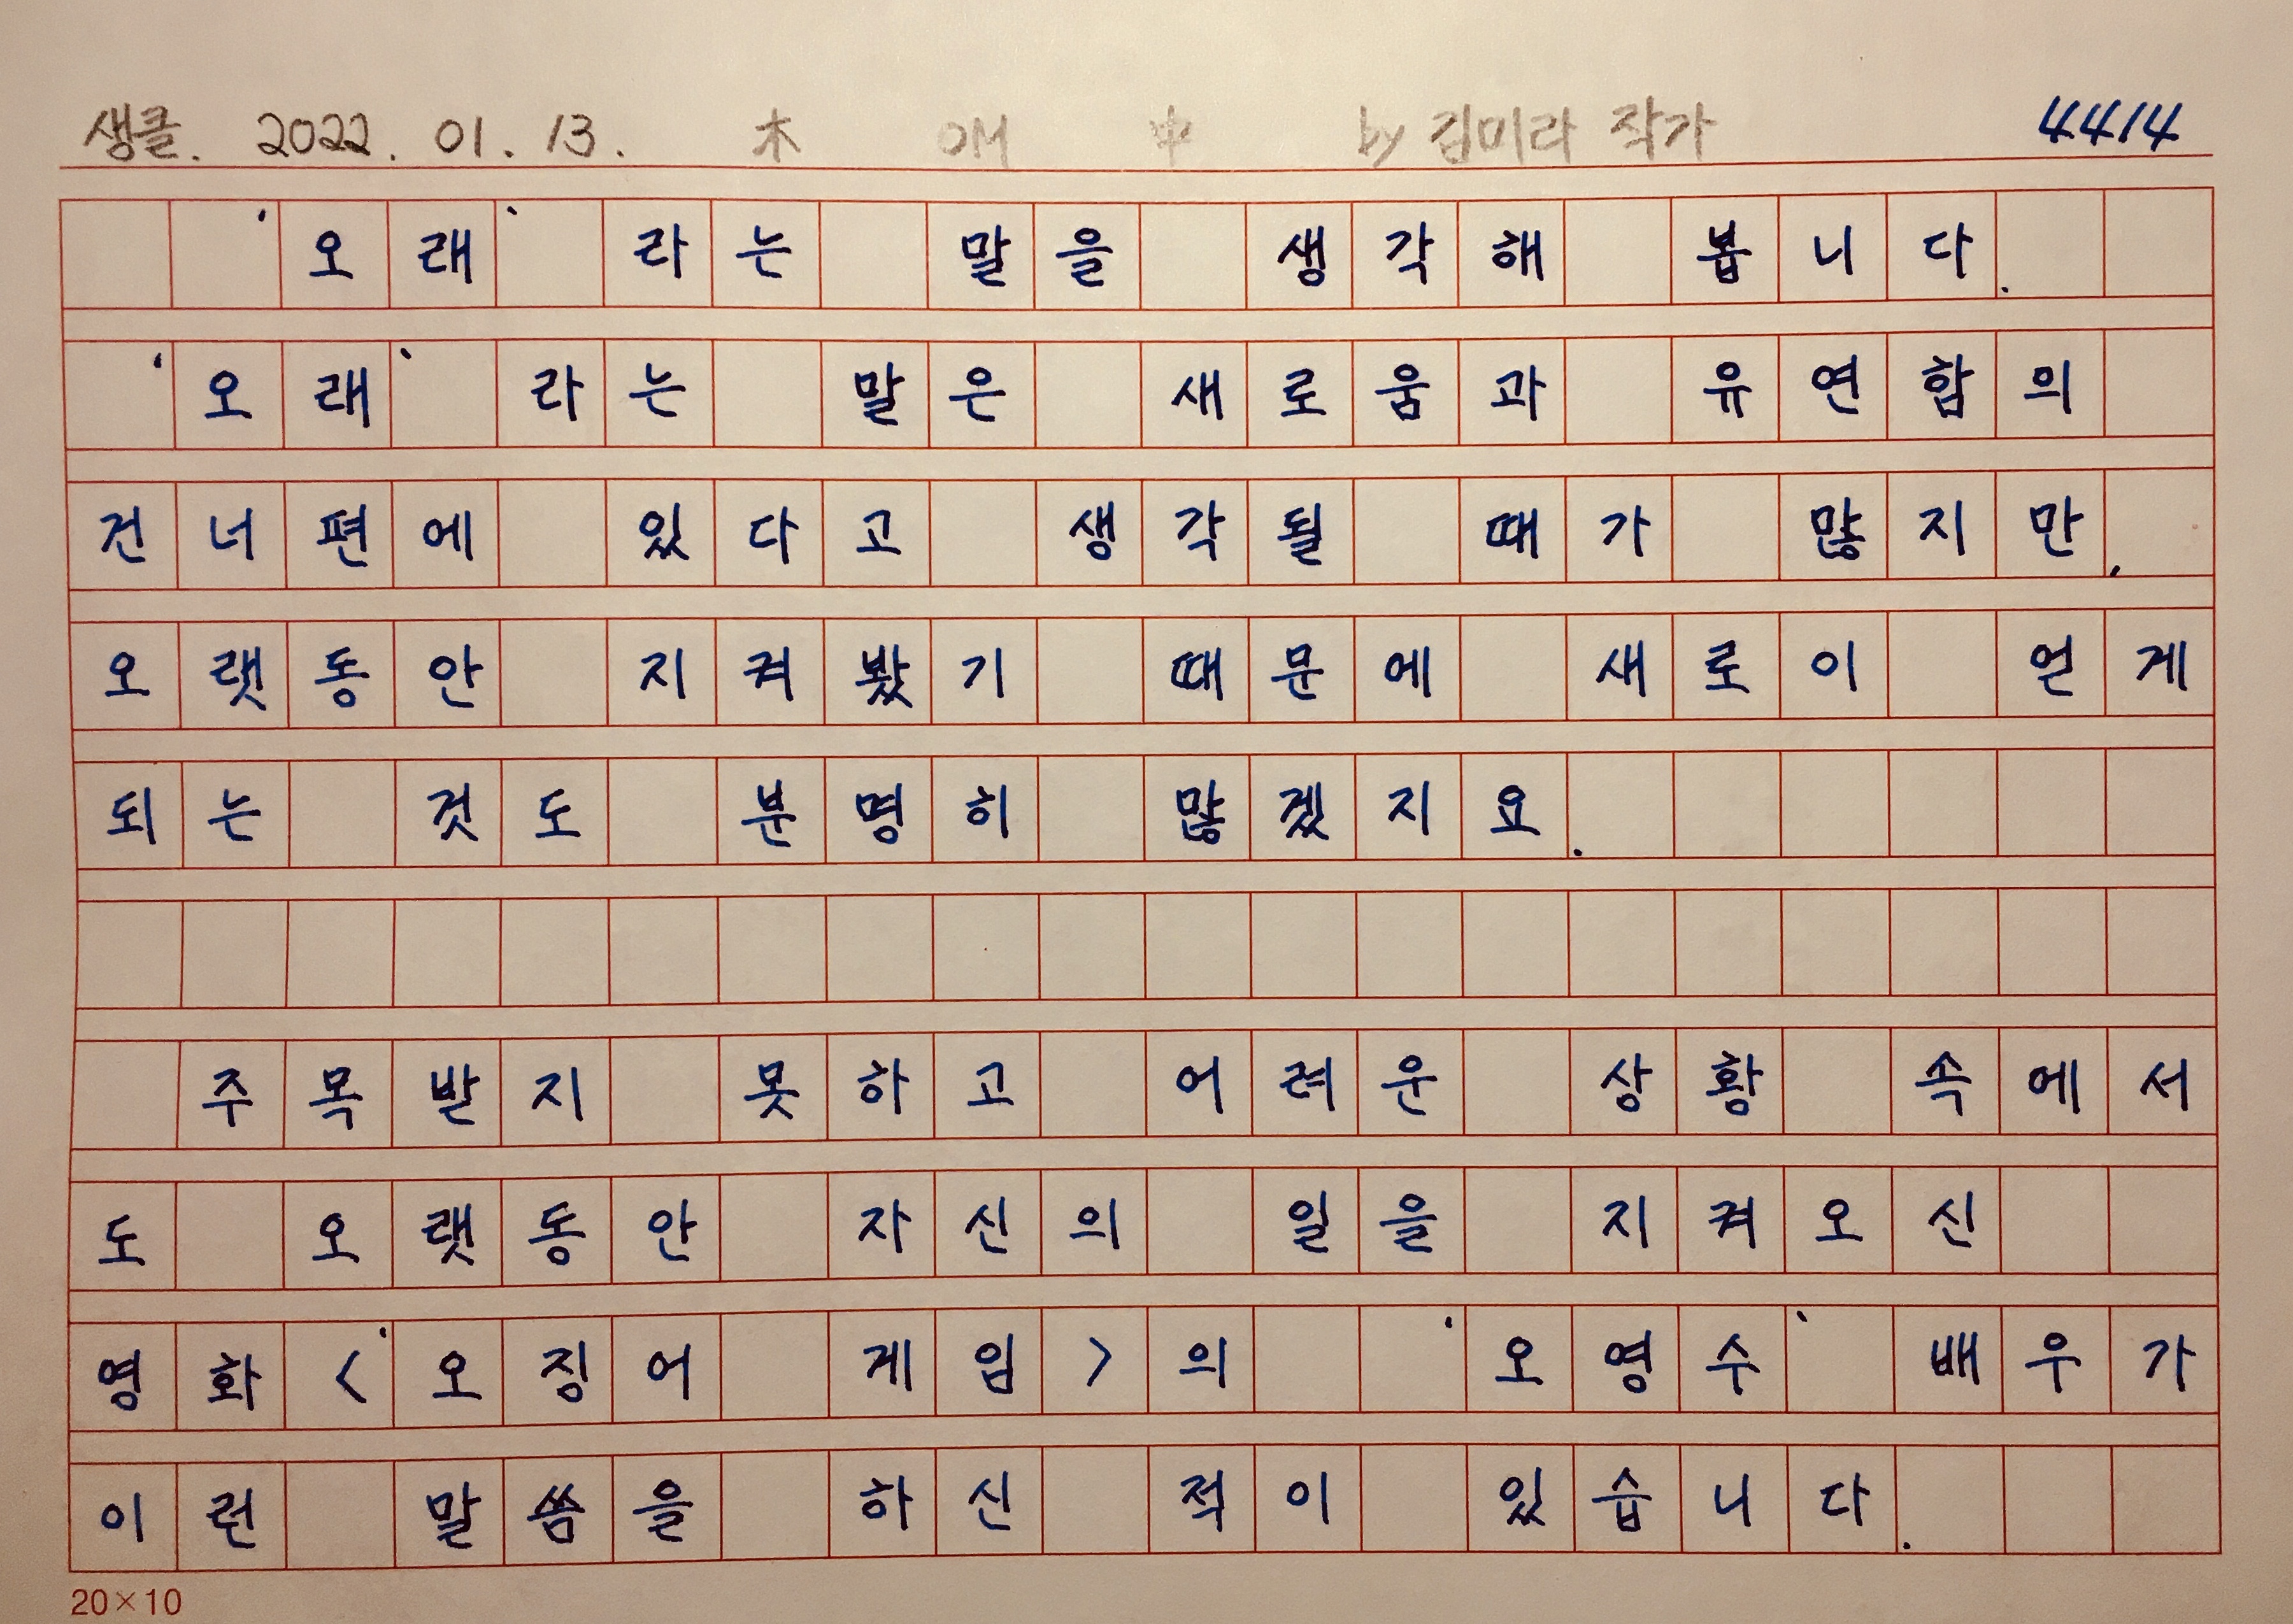 생클. 2022. 01. 13. 木 OM 中 by 김미라 작가 4414
'오래' 라는 말을 생각해 봅니다.
'오래' 라는 말은 새로움과 유연함의
건너편에 있다고 생각될 때가 많지만,
오랫동안 지켜봤기 때문에 새로이 얻게
되는 것도 분명히 많겠지요.
주목받지 못하고 어려운 상황 속에서
도 오랫동안 자신의 일을 지켜오신
영화 <'오징어 게임>의 '오영수' 배우가
이런 말씀을 하신 적이 있습니다.
20×10